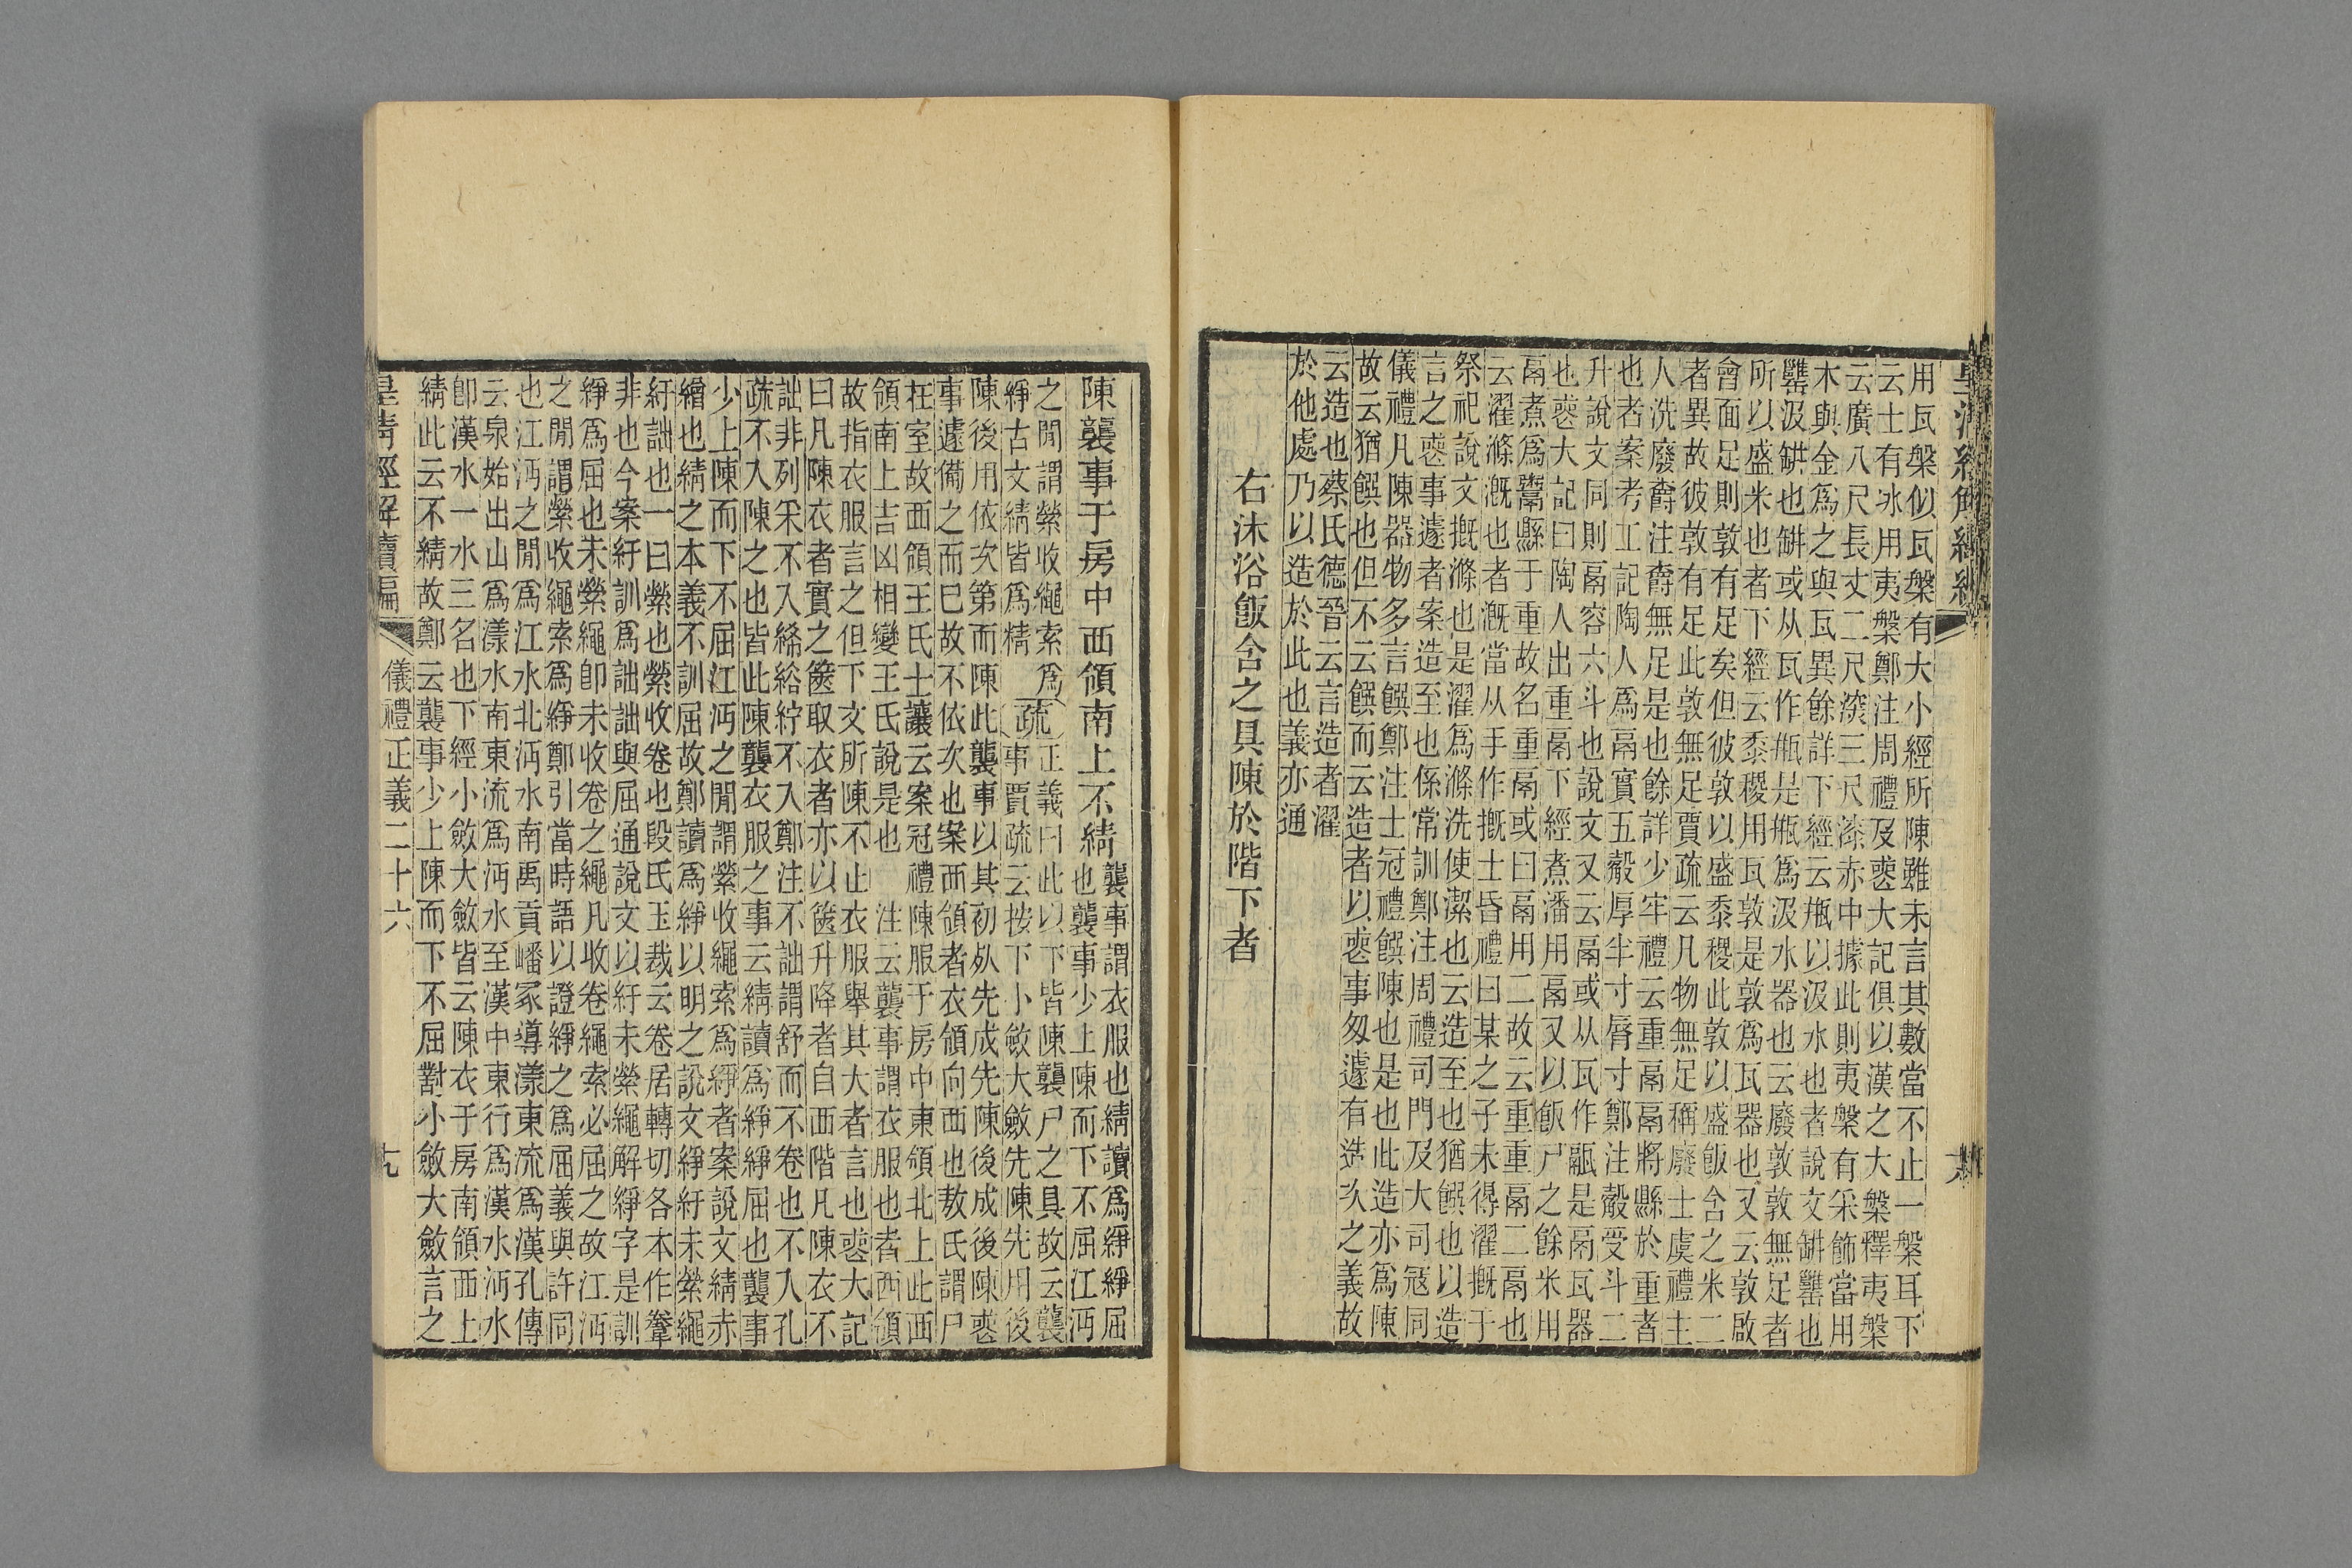 用瓦槃似瓦槃有大小經所陳雖未言其數當不止一槃耳下
云士有冰用夷槃鄭注周禮及喪大記俱以漢之大槃釋夷槃
云廣八尺長丈二尺深三尺漆赤中據此則夷槃有采飾當用
木與金爲之與瓦異餘詳下經云瓶以汲水也者說文缾罋也
罋汲缾也缾或从瓦作瓶是瓶爲汲水器也云廢敦敦無足者
所以盛米也者下經云黍稷用瓦敦是敦爲瓦器也又云敦啟
會面足則敦有足矣但彼敦以盛黍稷此敦以盛飯含之米二
者異故彼敦有足此敦無足賈疏云凡物無足稱廢士虞禮主
人洗廢爵注爵無足是也餘詳少牢禮云重鬲鬲將縣於重者
也者案考工記陶人爲鬲實五觳厚半寸脣寸鄭注觳受斗二
升說文同則鬲容六斗也說文又云鬲或从瓦作䰛是鬲瓦器
也喪大記曰陶人出重鬲下經煮潘用鬲又以飯尸之餘米用
鬲煮爲鬻縣于重故名重鬲或曰鬲用二故云重重鬲二鬲也
云濯滌漑也者漑當从手作摡士昏禮曰某之子未得濯摡于
祭祀說文摡滌也是濯爲滌洗使潔也云造至也猶饌也以造
言之喪事遽者案造至也係常訓鄭注周禮司門及大司寇同
儀禮凡陳器物多言饌鄭注士冠禮饌陳也是也此造亦爲陳
故云猶饌也但不云饌而云造者以喪事匆遽有造次之義故
云造也蔡氏德晉云言造者濯
於他處乃以造於此也義亦通
右沐浴飯含之具陳於階下者
陳襲事于房中西領南上不綪
襲事謂衣服也綪讀爲絣絣屈
也襲事少上陳而下不屈江沔
之閒謂縈收繩索爲
絣古文綪皆爲精
疏
正義曰此以下皆陳襲尸之具故云襲
事賈疏云按下小斂大斂先陳先用後
陳後用依次第而陳此襲事以其初死先成先陳後成後陳喪
事遽備之而已故不依次也案西領者衣領向西也敖氏謂尸
在室故西領王氏士讓云案冠禮陳服于房中東領北上此西
領南上吉凶相變王氏說是也 注云襲事謂衣服也者西領
故指衣服言之但下文所陳不止衣服舉其大者言也喪大記
曰凡陳衣者實之篋取衣者亦以篋升降者自西階凡陳衣不
詘非列采不入絺綌紵不入鄭注不詘謂舒而不卷也不入孔
疏不入陳之也皆此陳襲衣服之事云綪讀爲絣絣屈也襲事
少上陳而下不屈江沔之閒謂縈收繩索爲絣者案說文綪赤
繒也綪之本義不訓屈故鄭讀爲絣以明之說文絣紆未縈繩
紆詘也一曰縈也縈收卷也段氏玉裁云卷居轉切各本作韏
非也今案紆訓爲詘詘與屈通說文以紆未縈繩解絣字是訓
絣爲屈也未縈繩卽未收卷之繩凡收卷繩索必屈之故江沔
之閒謂縈收繩索爲絣鄭引當時語以證絣之爲屈義與許同
也江沔之閒爲江水北沔水南禹貢嶓冢導漾東流爲漢孔傳
云泉始出山爲漾水南東流爲沔水至漢中東行爲漢水沔水
卽漢水一水三名也下經小斂大斂皆云陳衣于房南領西上
綪此云不綪故鄭云襲事少上陳而下不屈對小斂大斂言之
皇清經解續編
儀禮正義二十六